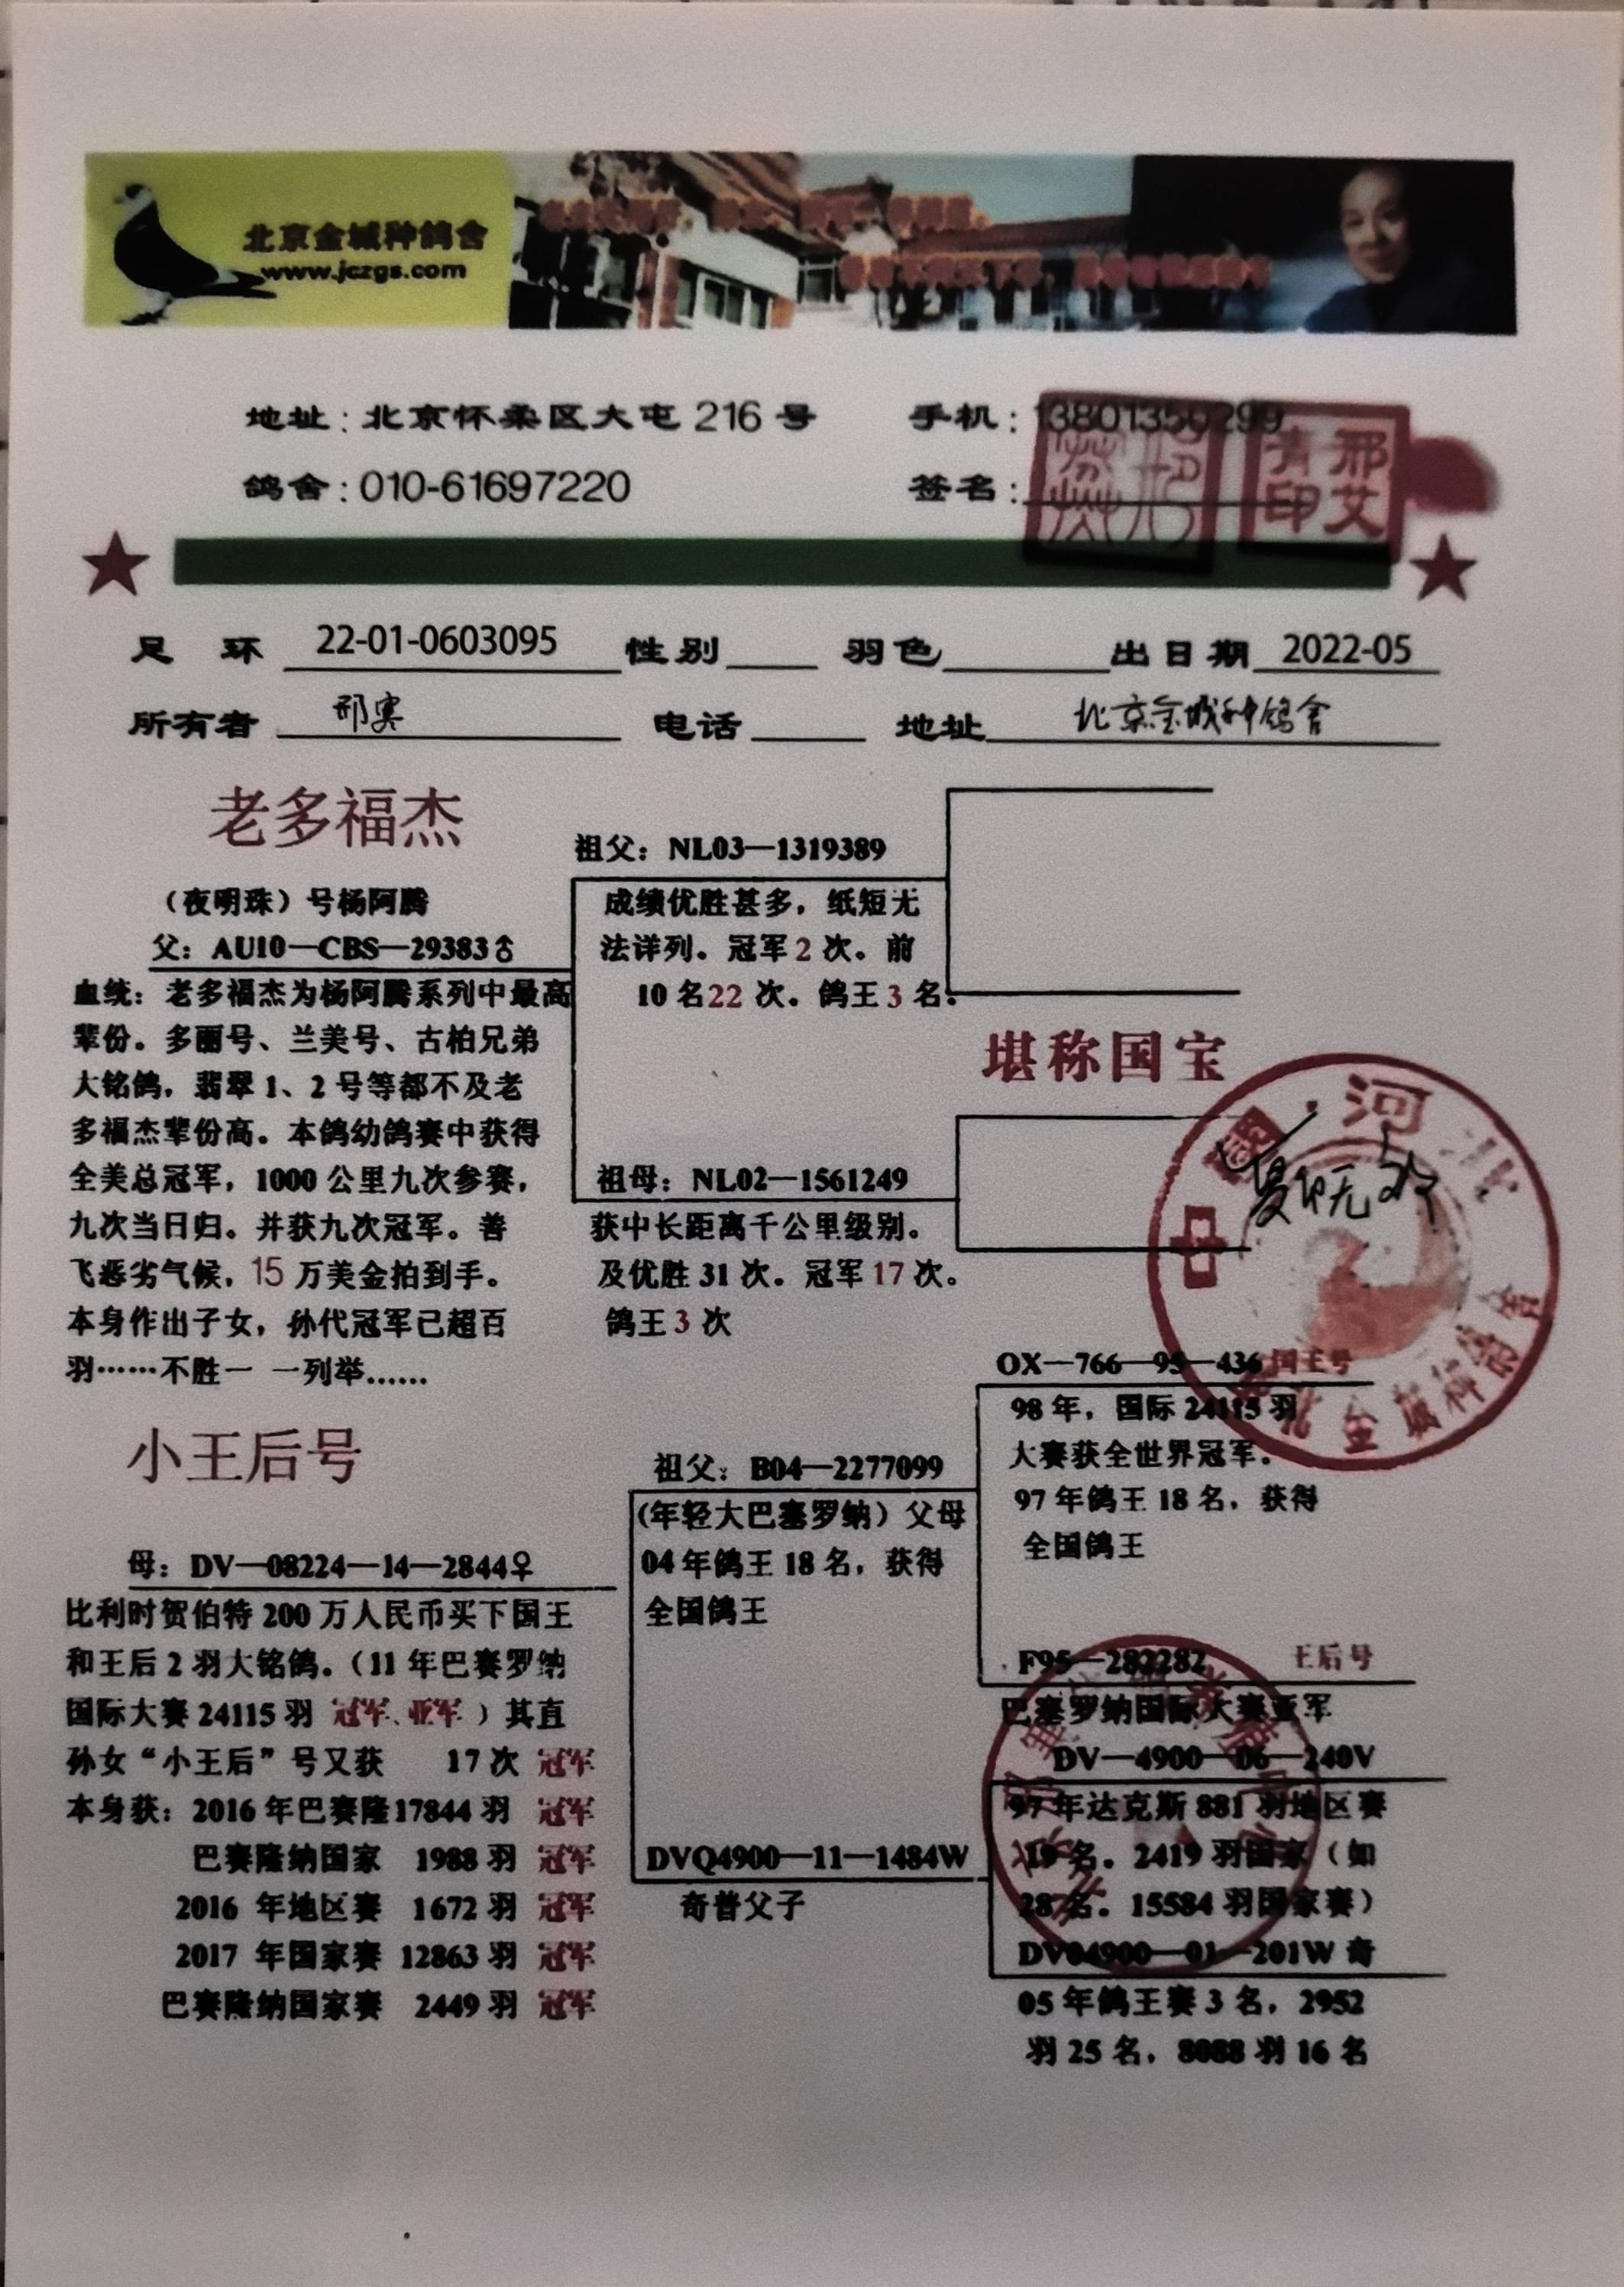 北京金城种鸽舍
www.jczgs.com
地址：北京怀柔区大屯 216 号
手机：13801350299
鸽舍：010-61697220
签名：
邢艾青印
足 环 22-01-0603095 性别 羽色 出日期 2022-05
所有者 邢寞 电话 地址 北京金城种鸽舍
老多福杰
（夜明珠）号杨阿腾
父：AU10—CBS—29383♂
血统：老多福杰为杨阿腾系列中最高
辈份。多丽号、兰美号、古柏兄弟
大铭鸽，翡翠 1、2 号等都不及老
多福杰辈份高。本鸽幼鸽赛中获得
全美总冠军，1000 公里九次参赛，
九次当日归。并获九次冠军。善
飞恶劣气候，15 万美金拍到手。
本身作出子女，孙代冠军已超百
羽……不胜一 一列举……
祖父：NL03—1319389
成绩优胜甚多，纸短无
法详列。冠军 2 次。前
10 名22 次。鸽王 3 名.
祖母：NL02—1561249
获中长距离千公里级别。
及优胜 31 次。冠军 17 次。
鸽王 3 次
堪称国宝
小王后号
母：DV—08224—14—2844♀
比利时贺伯特 200 万人民币买下国王
和王后 2 羽大铭鸽。（11 年巴赛罗纳
国际大赛 24115 羽 冠军、亚军 ）其直
孙女“小王后”号又获 17 次 冠军
本身获：2016 年巴赛隆17844 羽 冠军
巴赛隆纳国家 1988 羽 冠军
2016 年地区赛 1672 羽 冠军
2017 年国家赛 12863 羽 冠军
巴赛隆纳国家赛 2449 羽 冠军
祖父：B04—2277099
(年轻大巴塞罗纳）父母
04 年鸽王 18 名，获得
全国鸽王
DVQ4900—11—1484W
奇普父子
OX—766—95—436 国王号
98 年，国际 24115 羽
大赛获全世界冠军。
97 年鸽王 18 名，获得
全国鸽王
F95—282282 王后号
巴塞罗纳国际大赛亚军
DV—4900—06—240V
97 年达克斯 881 羽地区赛
19 名。2419 羽国家（如
28 名。15584 羽国家赛）
DV04900—01—201W 奇
05 年鸽王赛 3 名，2952
羽 25 名，8088 羽 16 名